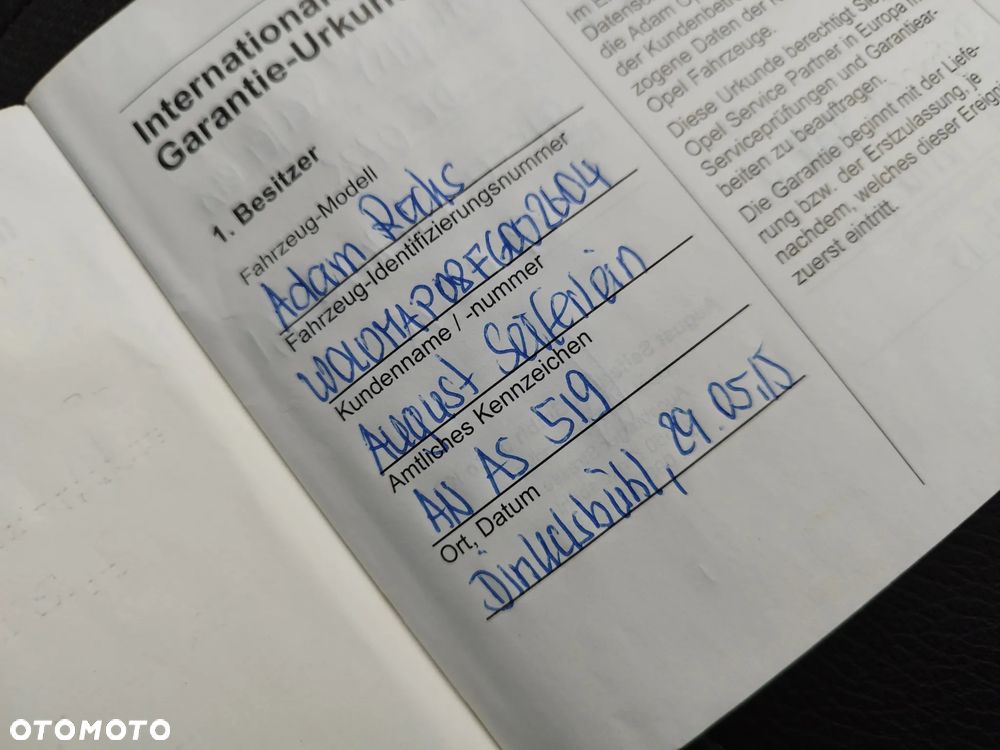 International
Garantie-Urkun
1. Besitzer
Fahrzeug-Modell
Adam Rocks
Fahrzeug-Identifizierungsnummer
W0L0MAP08F6002604
Kundenname / -nummer
August Seiferlein
Amtliches Kennzeichen
AN AS 519
Ort, Datum
Dinkelsbühl, 29.05.15
Im E
Datensc
die Adam Op
der Kundenbetre
zogene Daten der K
Opel Fahrzeuge.
Diese Urkunde berechtigt Sie,
Opel Service Partner in Europa mi
Serviceprüfungen und Garantiear-
beiten zu beauftragen.
Die Garantie beginnt mit der Liefe-
rung bzw. der Erstzulassung, je
nachdem, welches dieser Ereigni
zuerst eintritt.
OTOMOTO